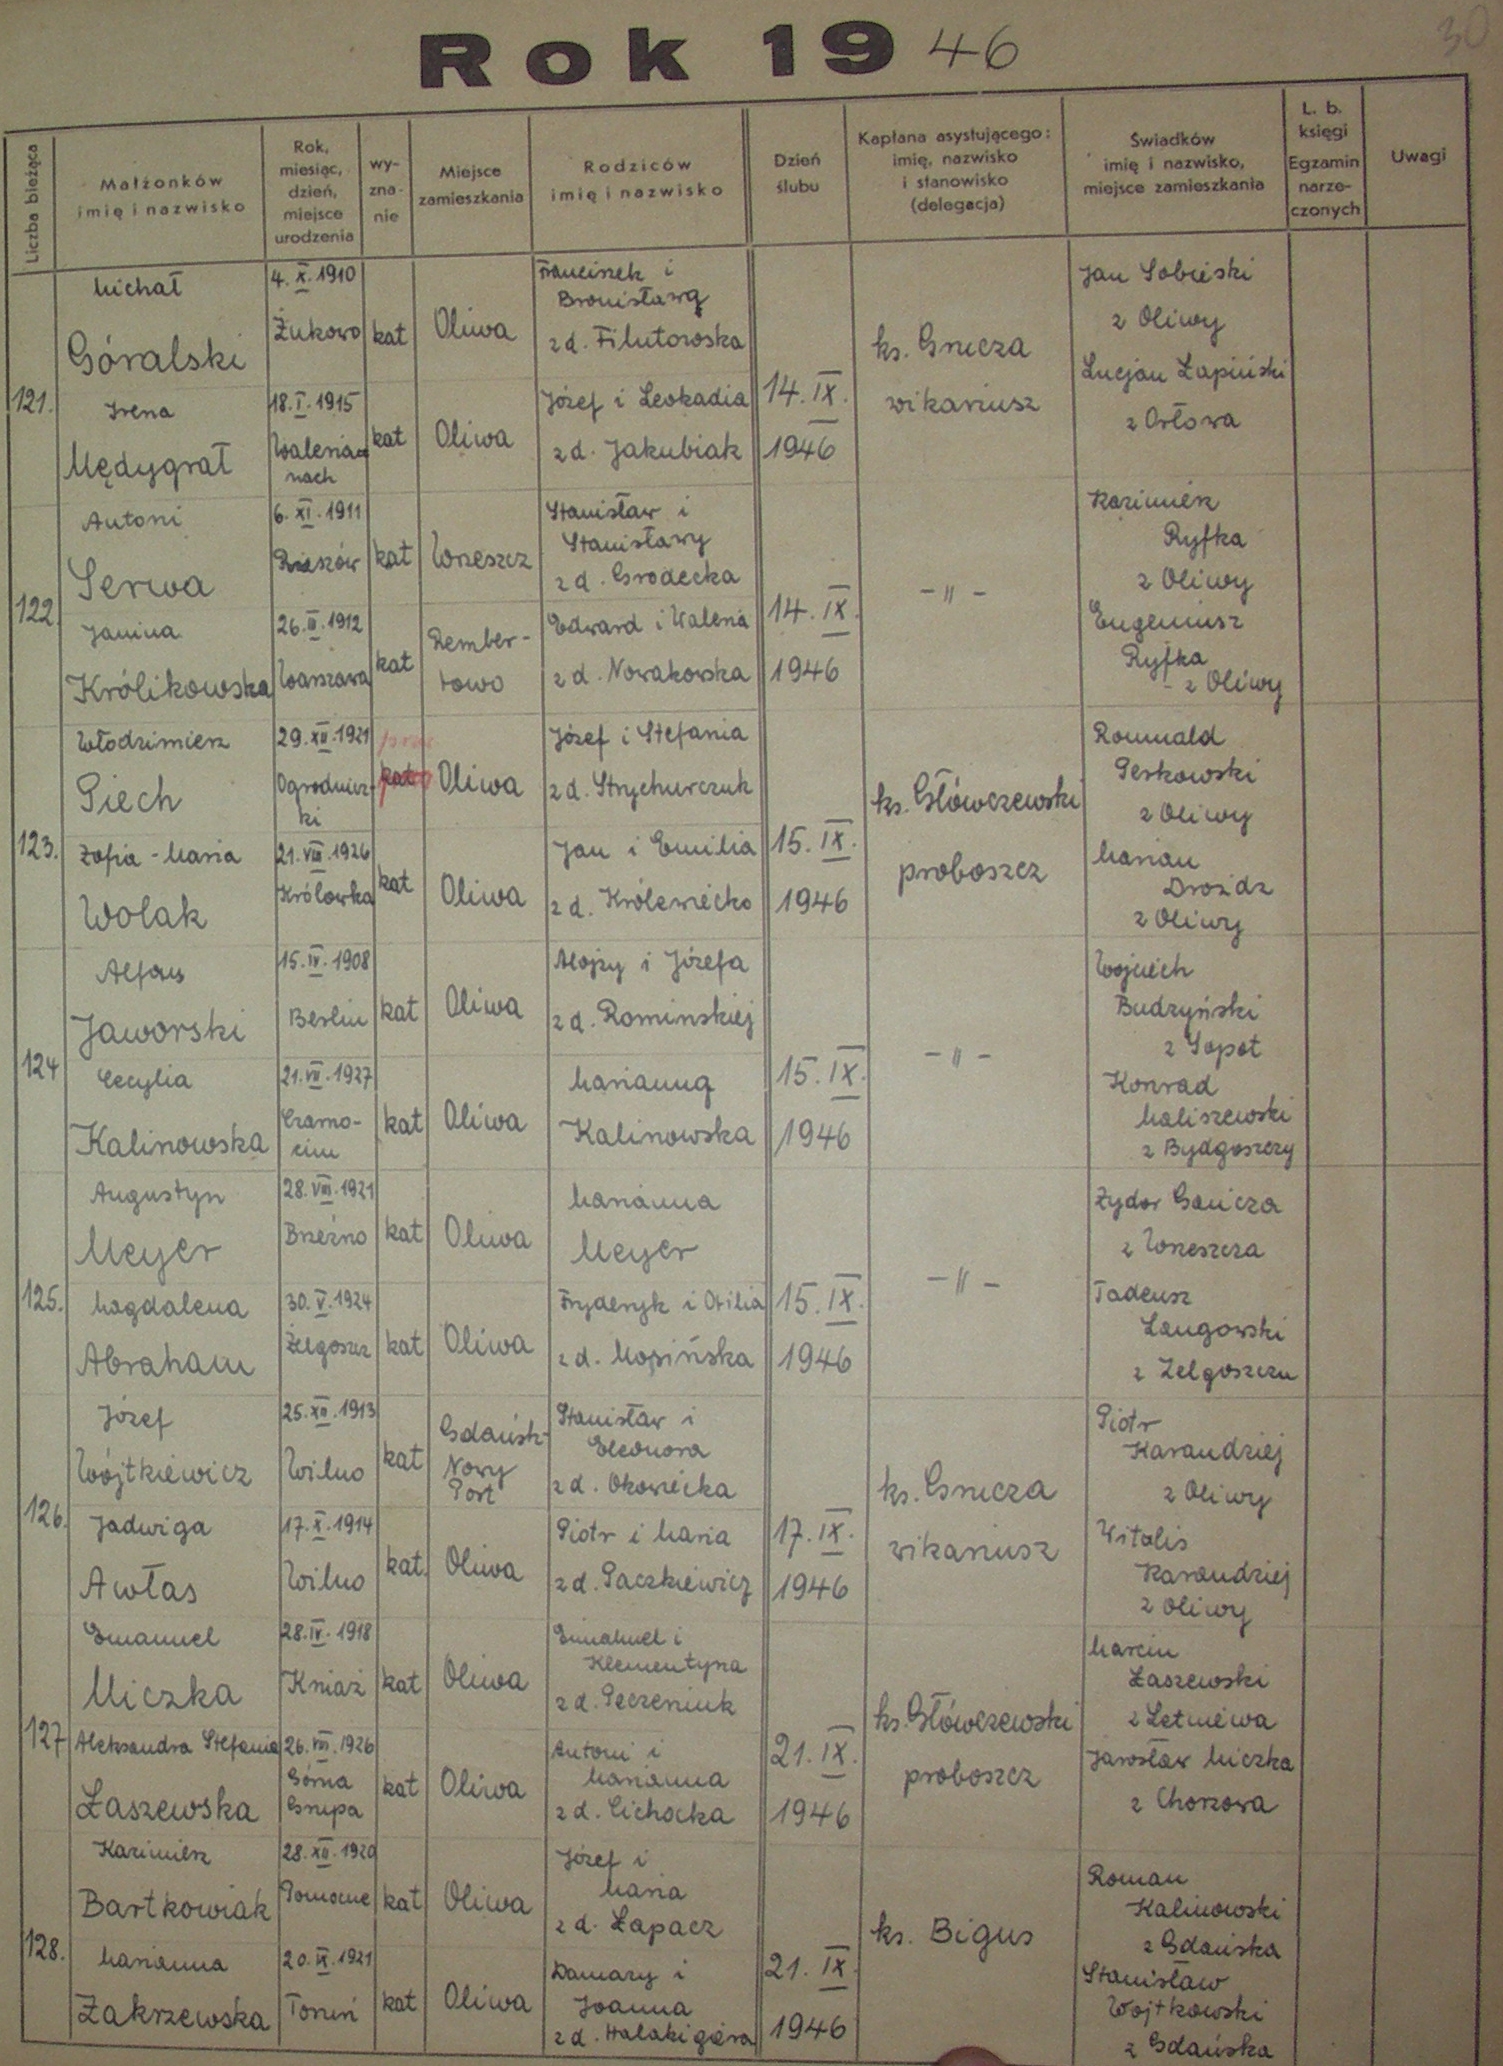 30
Rok 1946
Liczba bieżąca
Małżonków
imię i nazwisko
Rok,
miesiąc,
dzień,
miejsce
urodzenia
wy-
zna-
nie
Miejsce
zamieszkania
Rodziców
imię i nazwisko
Dzień
ślubu
Kapłana asystującego:
imię, nazwisko
i stanowisko
(delegacja)
Świadków
imię i nazwisko,
miejsce zamieszkania
L. b.
księgi
Egzamin
narze-
czonych
Uwagi
121.
Michał
Góralski
4. X. 1910
Żukowo
kat
Oliwa
Franciszek i
Bronisława
z d. Filutowska
Irena
Mędygrał
18. I. 1915
nach
kat
Oliwa
Józef i Leokadia
z d. Jakubiak
14. IX.
1946
ks. Gnicza
wikariusz
Jan Sobieski
z Oliwy
Lucjan Łapiński
z Orłowa
122.
Antoni
Serwa
6. XI. 1911
Rzeszów
kat
Wrzeszcz
Stanisław i
Stanisławy
z d. Grodecka
Janina
Królikowska
26. III. 1912
Warszawa
kat
Rember-
towo
Edward i Waleria
z d. Nowakowska
14. IX.
1946
- " -
Kazimierz
Ryfka
z Oliwy
Eugeniusz
Ryfka
- z Oliwy
123.
Włodzimierz
Piech
29. XII. 1921
Ogrodnicz-
ki
kat
Oliwa
Józef i Stefania
z d. Strychurczuk
Zofia - Maria
Wolak
21. VIII. 1926
Królowka
kat
Oliwa
Jan i Emilia
z d. Królewiecko
15. IX.
1946
ks. Główczewski
proboszcz
Romuald
Perkowski
z Oliwy
Marian
Drożdz
z Oliwy
124
Alfons
Jaworski
15. IV. 1908
Berlin
kat
Oliwa
Alojzy i Józefa
z d. Rominskiej
Cecylia
Kalinowska
21. VII. 1927
kat
Oliwa
Marianna
Kalinowska
15. IX.
1946
- " -
Wojciech
Budzyński
z Sopot
Konrad
Maliszewski
z Bydgoszczy
125.
Augustyn
Meyer
28. VIII. 1921
Brzeźno
kat
Oliwa
Marianna
Meyer
Magdalena
Abraham
30. V. 1924
Żelgoszcz
kat
Oliwa
Fryderyk i Otilia
z d. Mosińska
15. IX.
1946
- " -
Zydor Ganicza
z Wrzeszcza
Tadeusz
Langowski
z Zelgoszczu
126.
Józef
Wójtkiewicz
25. XII. 1913
Wilno
kat
Gdańsk-
Nowy
Port
Stanisław i
Eleonora
z d. Okowiecka
Jadwiga
Awłas
17. X. 1914
Wilno
kat.
Oliwa
Piotr i Maria
z d. Paczkiewicz
17. IX.
1946
ks. Gnicza
wikariusz
Piotr
Karandziej
z Oliwy
Witalis
Karandziej
z Oliwy
127
Emanuel
Miczka
28. IV. 1918
Kniaż
kat
Oliwa
Emanuel i
Klementyna
z d. Peczeniuk
Aleksandra Stefania
Łaszewska
26. VIII. 1926
Górna
Grupa
kat
Oliwa
Antoni i
Marianna
z d. Cichocka
21. IX.
1946
ks. Główczewski
proboszcz
Marcin
Łaszewski
z Letniewa
Jarosław Miczka
z Chorzowa
128.
Kazimierz
Bartkowiak
28. XII. 1920
kat
Oliwa
Józef i
Maria
z d. Łapacz
Marianna
Zakrzewska
20. IX. 1921
Toruń
kat
Oliwa
Damazy i
Joanna
21. IX.
1946
ks. Bigus
Roman
Kalinowski
z Gdańska
Stanisław
Wojtkowski
z Gdańska